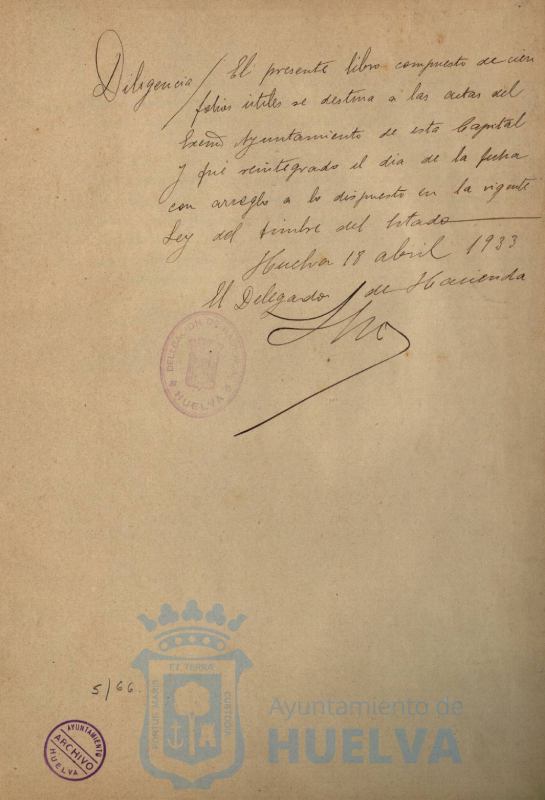 Diligencia / El presente libro compuesto de cien
folios útiles se destina a las actas del
Excmº Ayuntamiento de esta Capital
y fué reintegrado el dia de la fecha
con arreglo a lo dispuesto en la vigente
Ley del timbre del Estado
Huelva 18 abril 1933
El Delegado de Hacienda
DELEGACION DE HACIENDA
HUELVA
5/66
AYUNTAMIENTO
ARCHIVO
HUELVA
ET TERRÆ
PORTUS MARIS
CUSTODIA
Ayuntamiento de
HUELVA